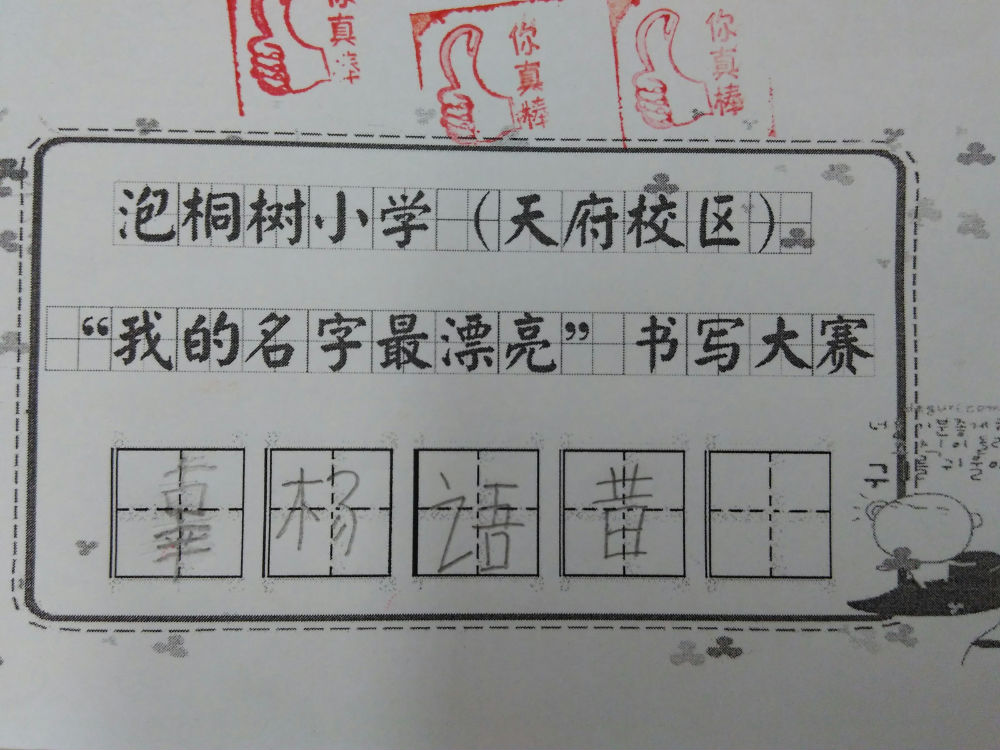 你真棒 你真棒 你真棒
泡桐树小学（天府校区）
“我的名字最漂亮” 书写大赛
杨语昔